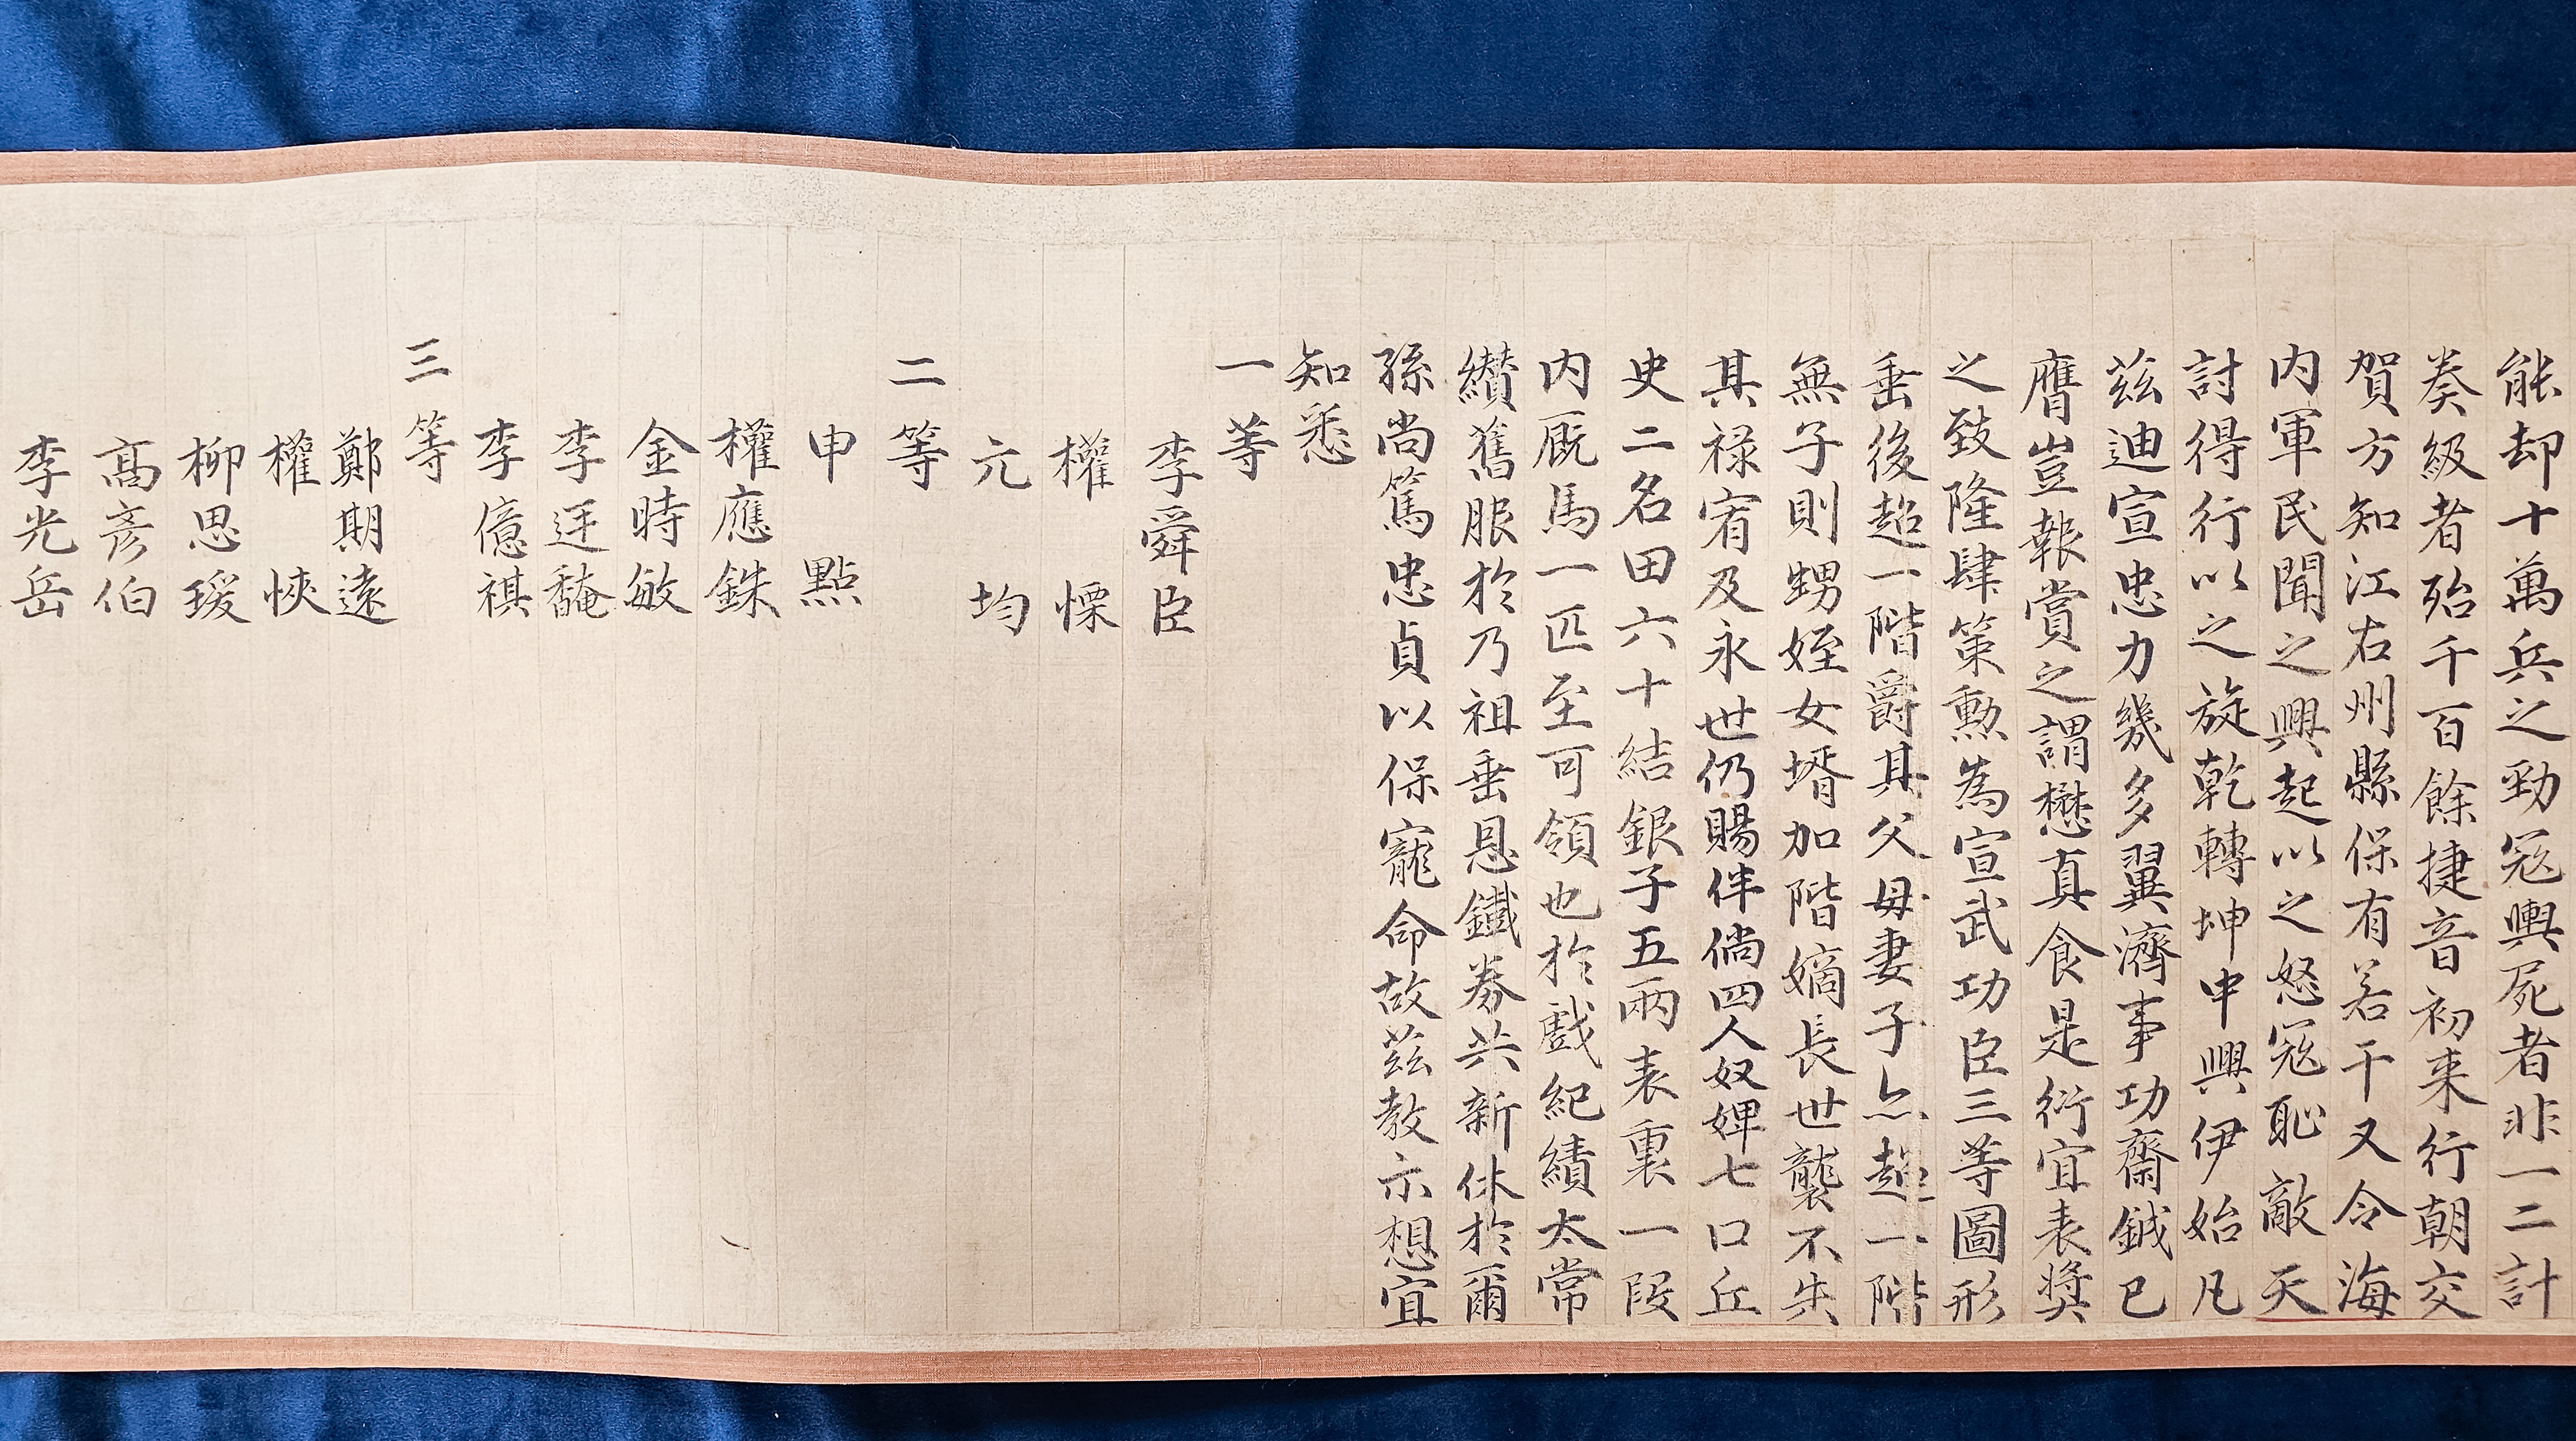 能却十萬兵之勁寇輿屍者非一二計
奏級者殆千百餘捷音初来行朝交
賀方知江右州縣保有若干又令海
内軍民聞之興起以之怒寇恥敵天
討得行以之旋乾轉坤中興伊始凡
茲迪宣忠力幾多翼濟事功齋鉞已
膺豈報賞之謂懋真食是衍宜表奬
之致隆肆策勲為宣武功臣三等圖形
垂後超一階爵其父母妻子亦超一階
無子則甥姪女壻加階嫡長世襲不失
其禄宥及永世仍賜伴倘四人奴婢七口丘
史二名田六十結銀子五兩表裏一段
内厩馬一匹至可領也於戲紀績太常
纘舊服於乃祖垂恩鐵券共新休於爾
孫尚篤忠貞以保寵命故茲教示想宜
知悉
一等
李舜臣
權慄
元均
二等
申點
權應銖
金時敏
李廷馣
李億祺
三等
鄭期遠
權悏
柳思瑗
高彦伯
李光岳